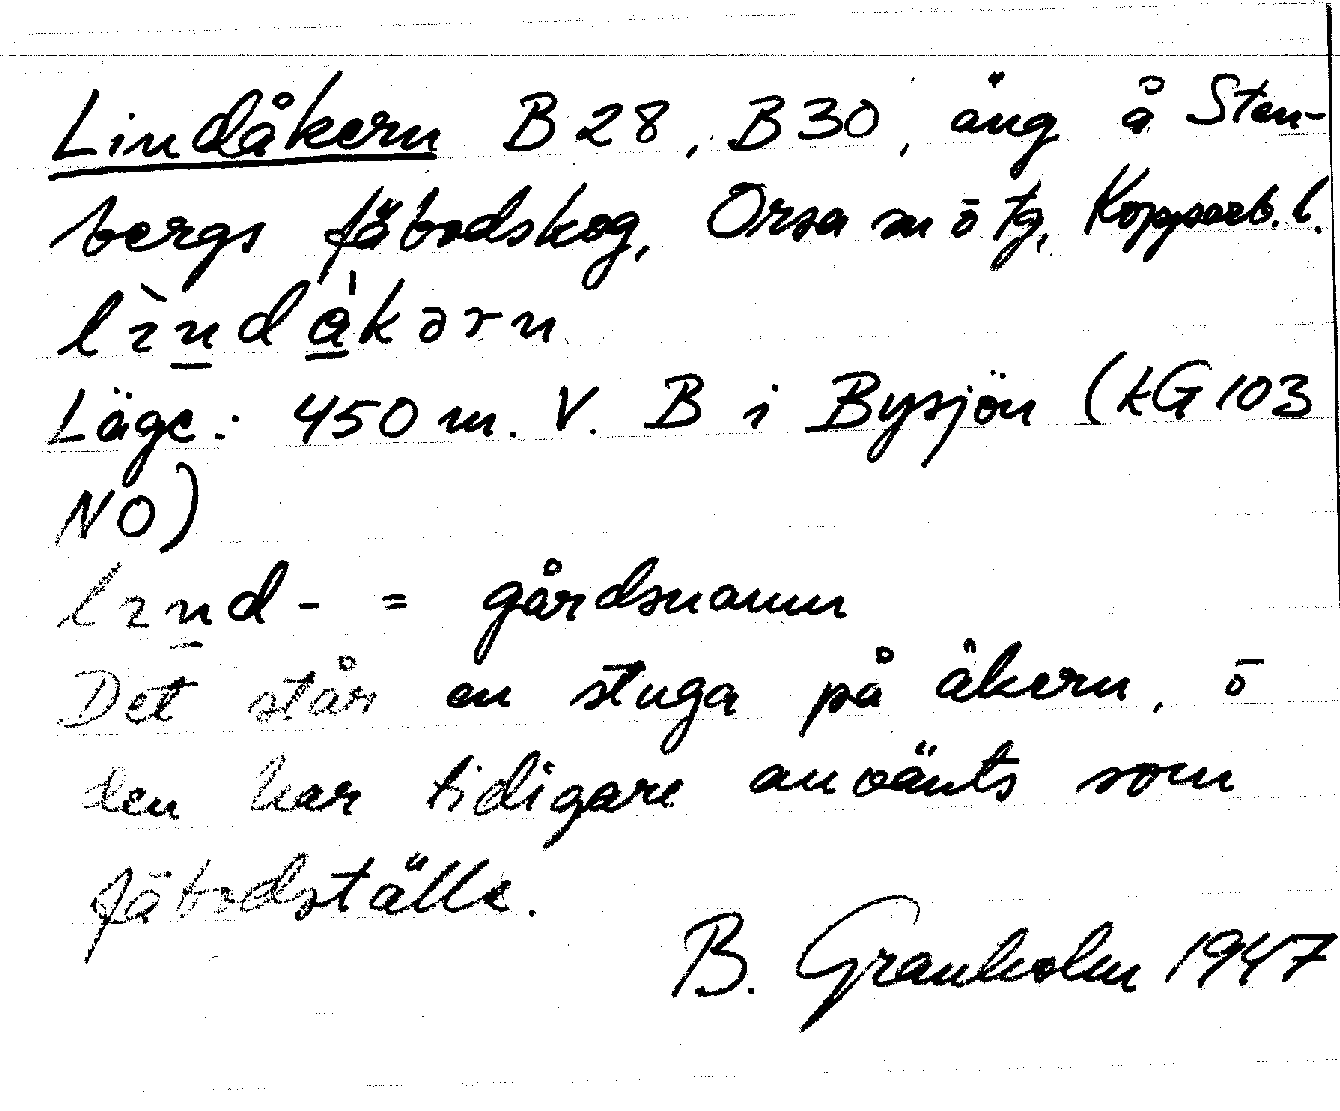 Lindåkern B28, B30, äng å Sten-
bergs fäbodskog, Orsa sn ō tg, Kopparb. l.
lìndåkərn
Läge: 450 m. V. B i Bysjön (kG 103
NO)
lınd- = gårdsnamn
Det står en stuga på åkern, ō
den har tidigare använts som
fäbodställe.
B. Granholm 1947